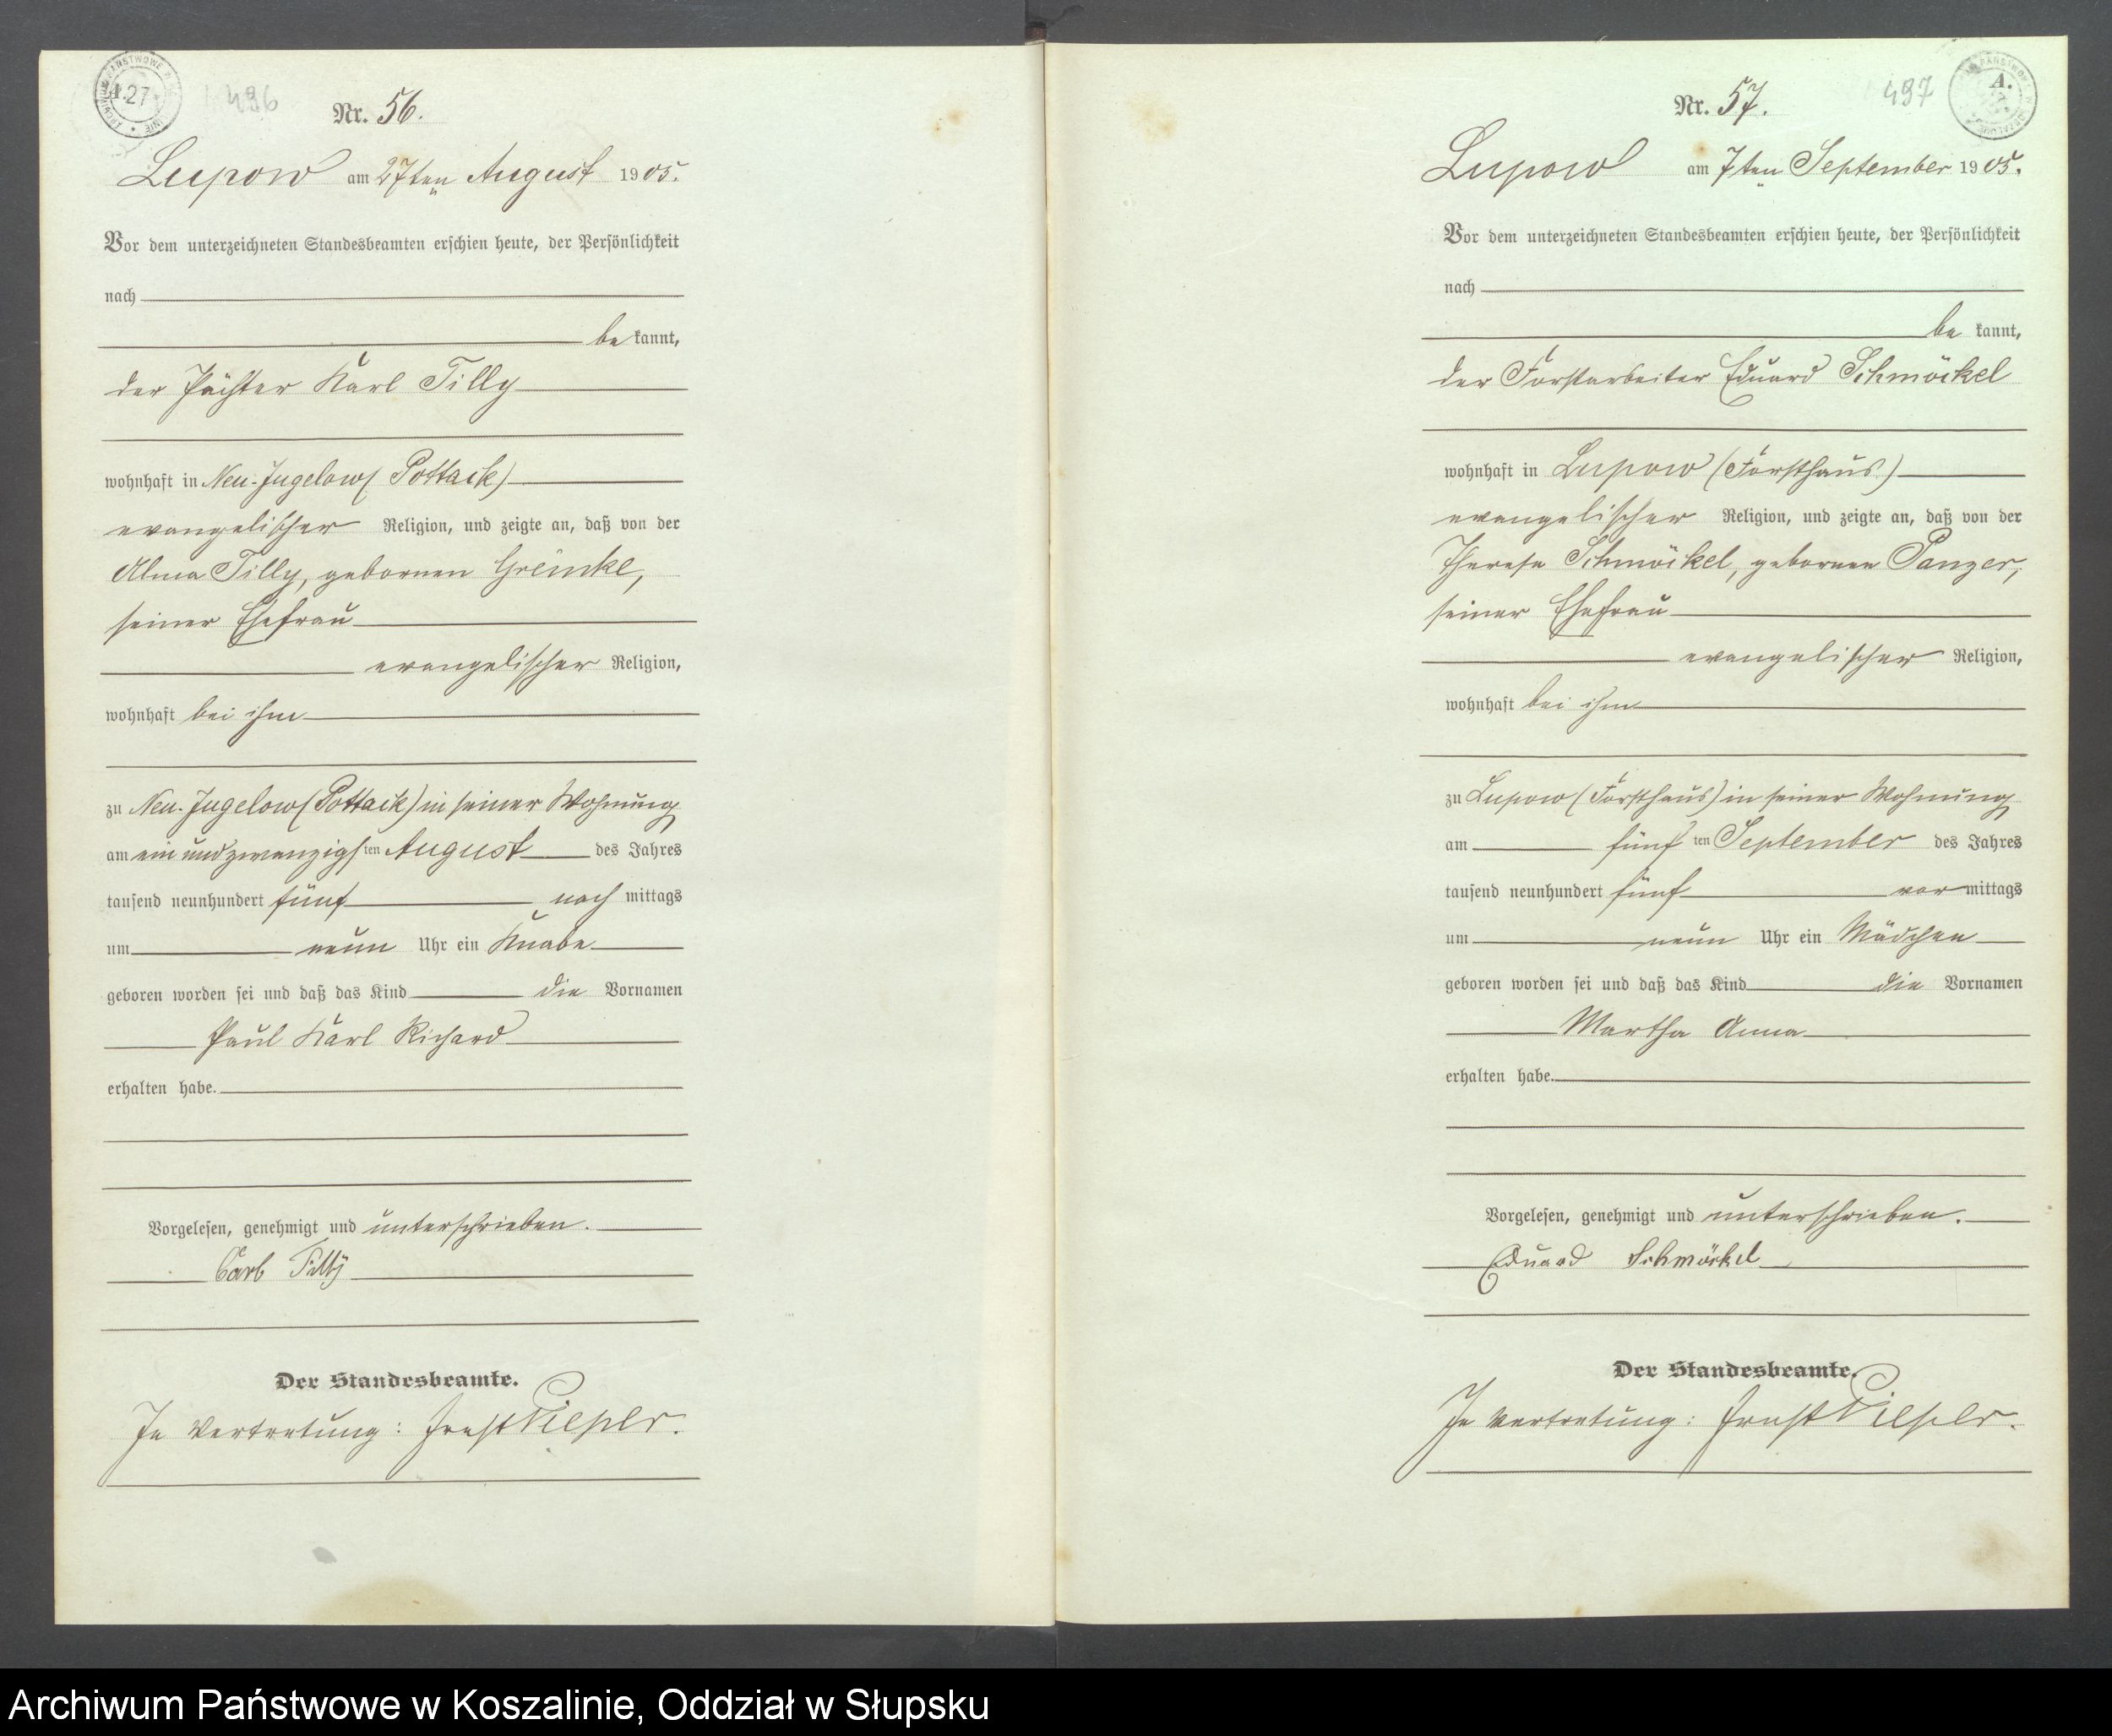 496
Nr. 56.
Lupow am 27ten August 1905.
Vor dem unterzeichneten Standesbeamten erschien heute, der Persönlichkeit
nach
be kannt,
der Pächter Karl Tilly
wohnhaft in Neu-Jugelow (Pottack)
evangelischer Religion, und zeigte an, daß von der
Alma Tilly, geborenen Greinke,
seiner Ehefrau
evangelischer Religion,
wohnhaft bei ihm
zu Neu-Jugelow (Pottack) in seiner Wohnung
am ein und zwanzigsten August des Jahres
tausend neunhundert fünf nach mittags
um neun Uhr ein Knabe
geboren worden sei und daß das Kind die Vornamen
Paul Karl Richard
erhalten habe.
Vorgelesen, genehmigt und unterschrieben.
Carl Tilly
Der Standesbeamte.
In Vertretung: Ernst Pieper.
497
Nr. 57.
Lupow am 7ten September 1905.
Vor dem unterzeichneten Standesbeamten erschien heute, der Persönlichkeit
nach
be kannt,
der Forstarbeiter Eduard Schmöckel
wohnhaft in Lupow (Forsthaus)
evangelischer Religion, und zeigte an, daß von der
Therese Schmöckel, geborenen Panzer,
seiner Ehefrau
evangelischer Religion,
wohnhaft bei ihm
zu Lupow (Forsthaus) in seiner Wohnung
am fünf ten September des Jahres
tausend neunhundert fünf vor mittags
um neun Uhr ein Mädchen
geboren worden sei und daß das Kind die Vornamen
Martha Anna
erhalten habe.
Vorgelesen, genehmigt und unterschrieben.
Eduard Schmöckel
Der Standesbeamte.
In Vertretung: Ernst Pieper.
Archiwum Państwowe w Koszalinie, Oddział w Słupsku